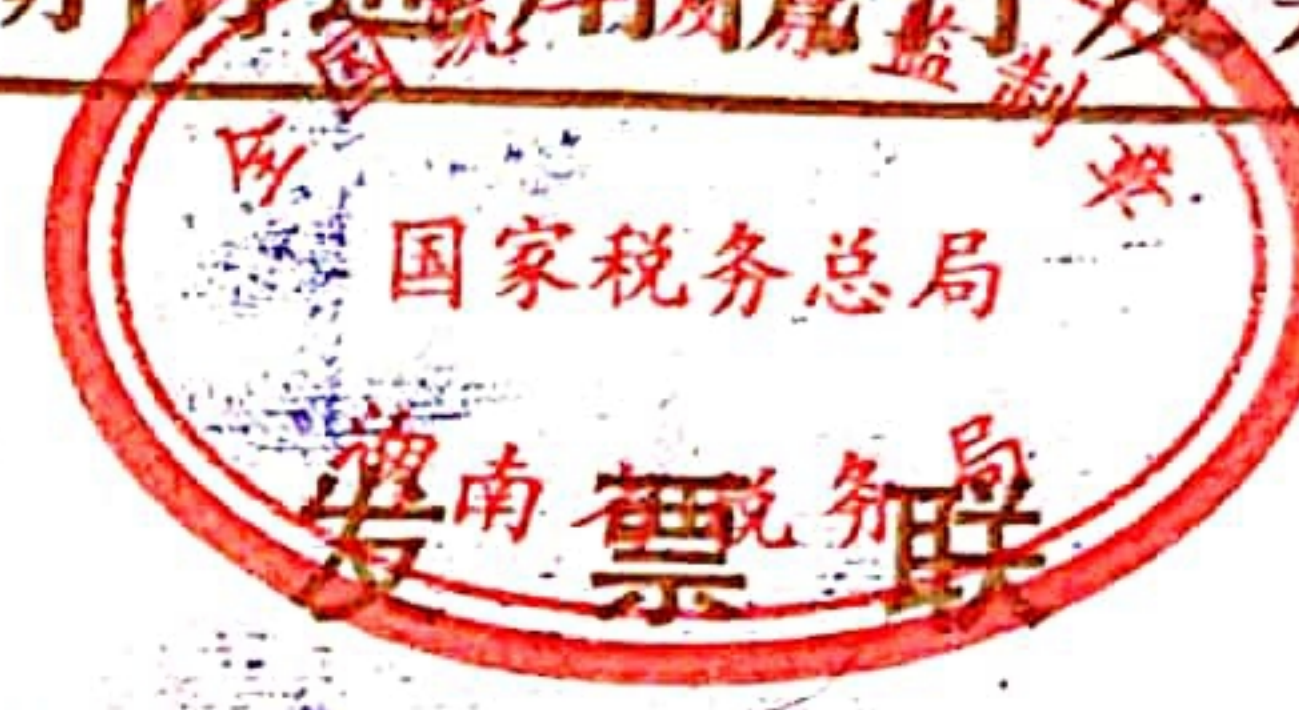 通用机打发
全国统一发票监制章
国家税务总局
湖南省税务局
发票联